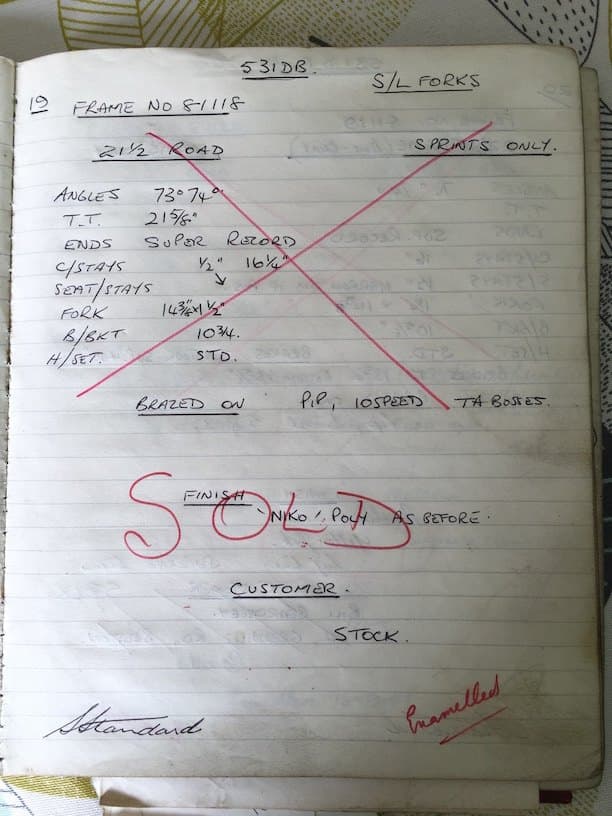 531DB.
S/L FORKS
19 FRAME NO 81118
21 1/2 ROAD SPRINTS ONLY.
ANGLES 73° 74°
T.T. 21 5/8"
ENDS SUPER RECORD
C/STAYS 1/2" 16 1/4"
SEAT/STAYS ↘
FORK 14 3/8" x 1 1/2"
B/BKT 10 3/4.
H/SET. STD.
BRAZED ON P.P, 10SPEED TA BOSSES.
SOLD
FINISH
NIKO / POLY AS BEFORE.
CUSTOMER.
STOCK.
Standard
Enamelled